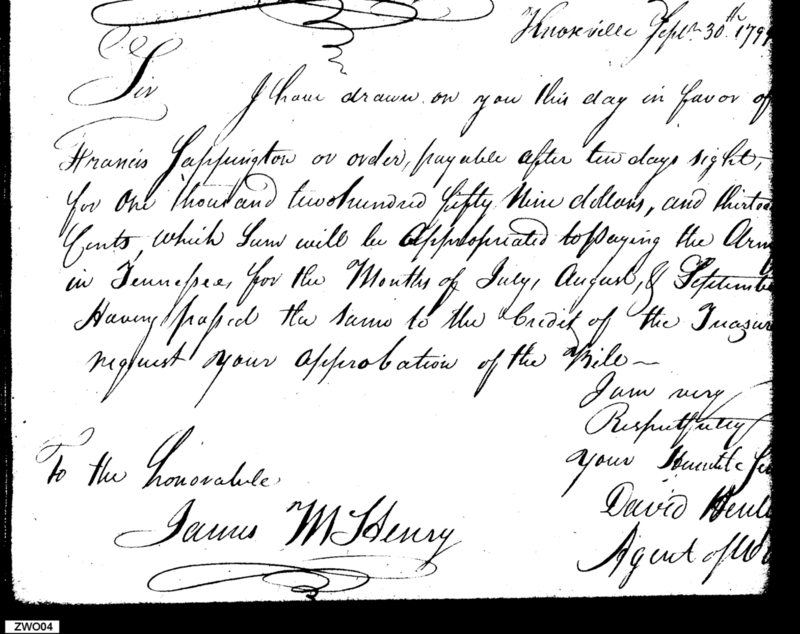 Knoxville Septr. 30th. 179
Sir I have drawn on you this day in favor of
Francis Sappington or order, payable after ten days sight,
for One thousand two hundred fifty Nine dollars, and thirteen
Cents, which Sum will be appropriated to paying the Arm
in Tennessee, for the Months of July, August, & Septembe
Having passed the same to the Credit of the Treasur
request your approbation of the Bill —
I am very
Respectfully
your Humble Se
David Henl
Agent of W
To the Honorable
James McHenry
ZWO04